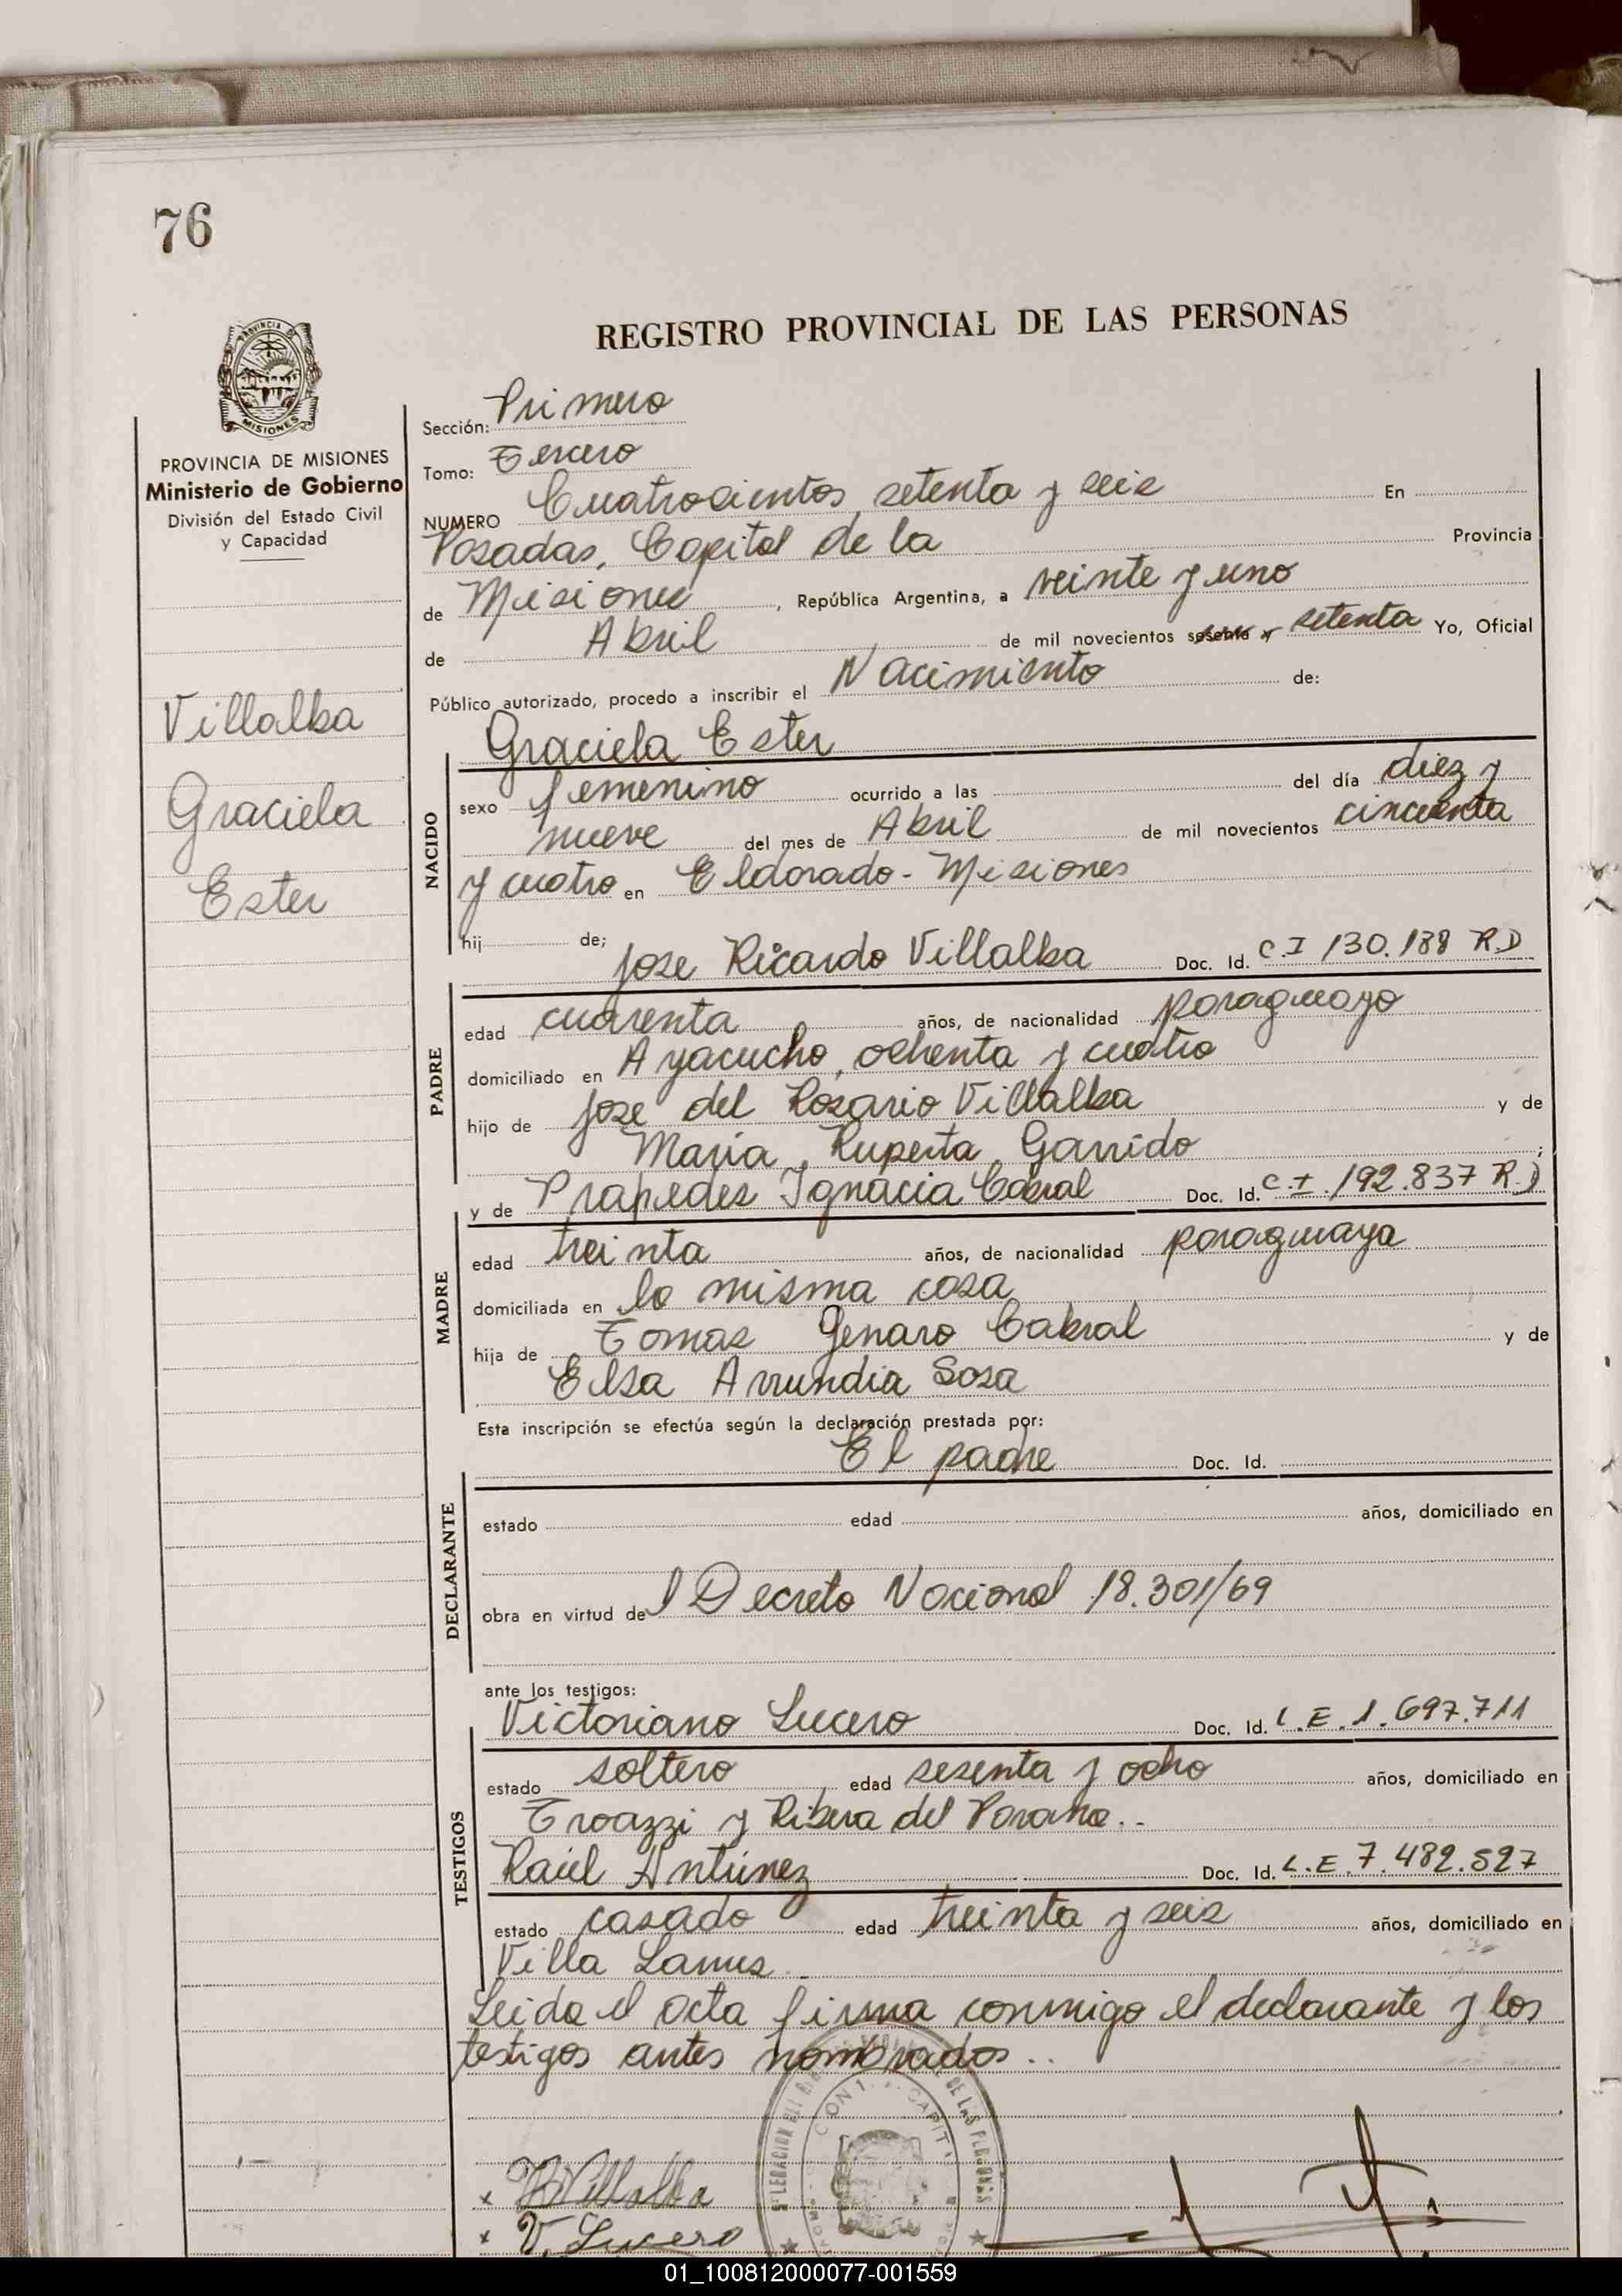 76
REGISTRO PROVINCIAL DE LAS PERSONAS
PROVINCIA DE MISIONES
Ministerio de Gobierno
División del Estado Civil
y Capacidad
Villalba
Graciela
Ester
Sección: Primero
Tomo: Tercero
NUMERO Cuatrocientos setenta y seis En
Posadas, Capital de la Provincia
de Misiones, República Argentina, a veinte y uno
de Abril de mil novecientos sesenta y setenta Yo, Oficial
Público autorizado, procedo a inscribir el Nacimiento de:
Graciela Ester
NACIDO
sexo femenino ocurrido a las del día diez y
nueve del mes de Abril de mil novecientos cincuenta
y cuatro en Eldorado - Misiones
hij de; Jose Ricardo Villalba Doc. Id. C.I 130.188 R.D
PADRE
edad cuarenta años, de nacionalidad paraguayo
domiciliado en Ayacucho, ochenta y cuatro
hijo de Jose del Rosario Villalba y de
Maria Ruperta Garrido ;
y de Prapedes Ignacia Cabral Doc. Id. C.I. 192.837 R.D
MADRE
edad treinta años, de nacionalidad paraguaya
domiciliada en la misma casa
hija de Tomas Genaro Cabral y de
Elsa Arrundia Sosa
Esta inscripción se efectúa según la declaración prestada por:
El padre Doc. Id.
DECLARANTE
estado edad años, domiciliado en
obra en virtud del Decreto Nacional 18.301/69
ante los testigos:
Victoriano Lucero Doc. Id. L.E. 1.697.711
TESTIGOS
estado soltero edad sesenta y ocho años, domiciliado en
Troazzi y Ribera del Parana..
Raúl Antúnez Doc. Id. L.E. 7.482.527
estado casado edad treinta y seis años, domiciliado en
Villa Lanus
Leida el acta firma conmigo el declarante y los
testigos antes nombrados..
x Villalba
x V. Lucero
01_100812000077-001559